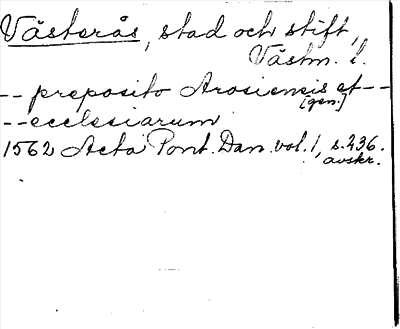 Västerås, stad och stift,
Västm. l.
-- preposito Arosiensis et --
[gen.]
-- ecclesiarum
1562 Acta Pont. Dan. vol. 1, s. 236.
avskr.